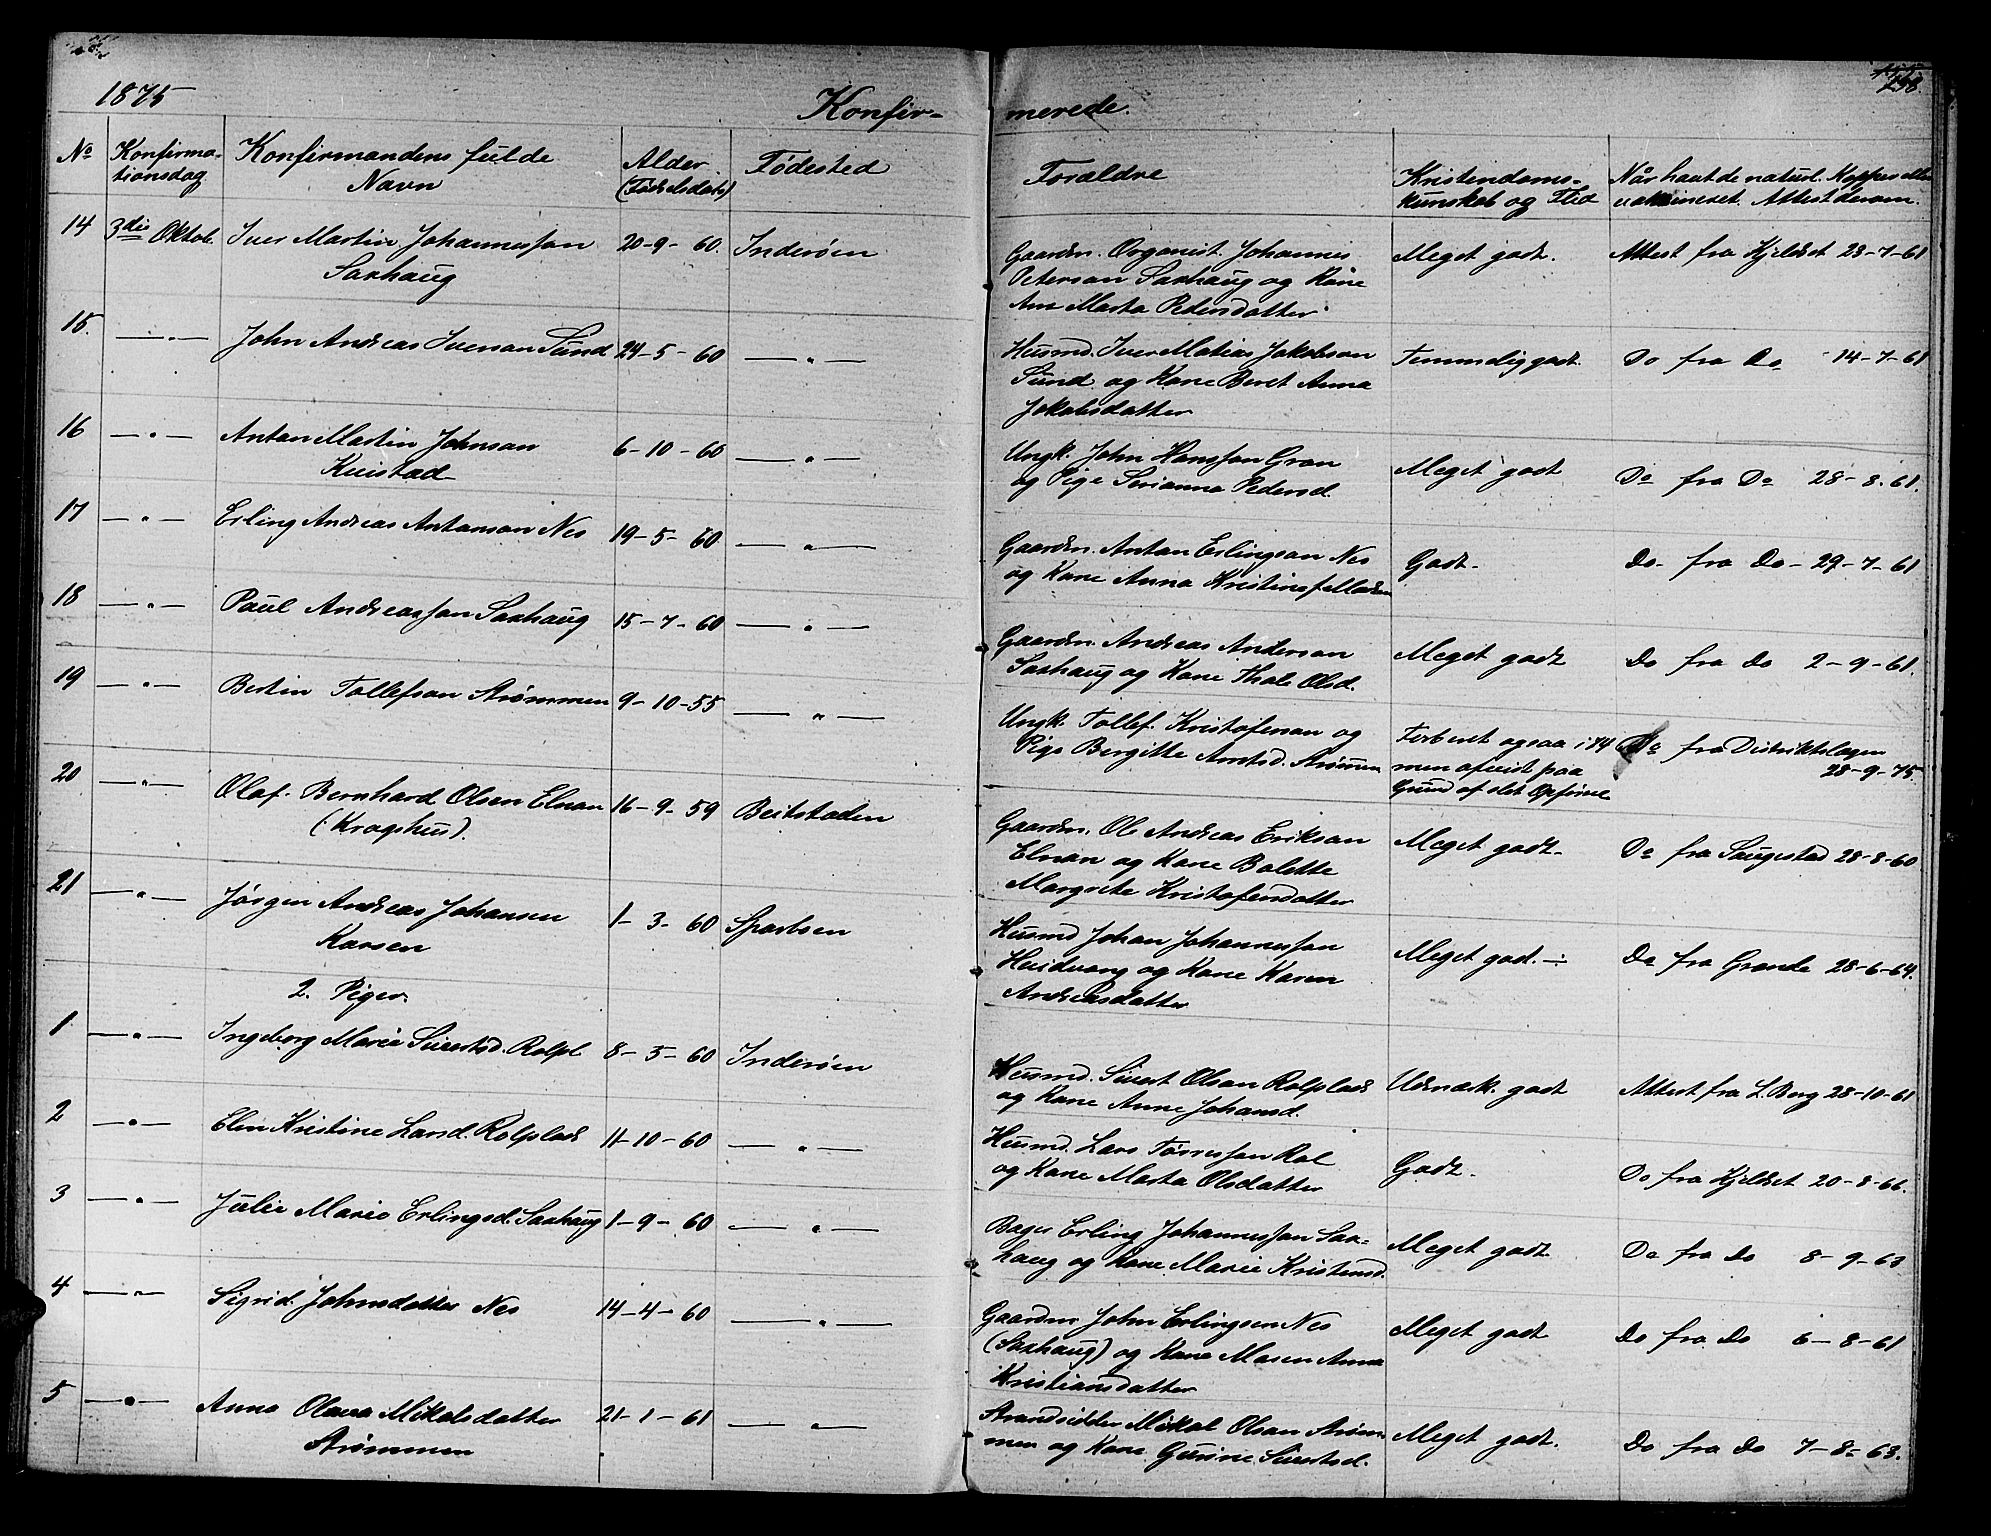 1875
Konfir- merede.
258.
No Konfirma-tionsdag Konfirmandens fulde Navn Alder (Fødselsdato) Fødested Forældre Kristendoms-kunskab og Flid Når havt de naturl. Kopper eller vaksineret. Attest derom.
14 3die Oktob. Iver Martin Johannessøn 20-9-60. Inderøen Gaardm. Organist Johannes Meget godt. Attest fra Hjeldset 28-7-61
Saxhaug Peterson Saxhaug og Kone
Ane Marta Pedersdatter
15. —„— John Andreas Iverson Sund 24-5-60 —„— Husmd. Iver Matias Jakobson Temmelig godt. Do fra Do 14-7-61
Sund og Kone Beret Anna
Jakobsdatter
16 —„— Anton Martin Johnson 6-10-60 —„— Ungk. John Hanssøn Gran Meget godt Do fra Do 28-8-61.
Kvistad og Pige Serianna Pedersd.
17 —„— Erling Andreas Antonson Nes 19-5-60 —„— Gaardm. Anton Erlingson Nes Godt. Do fra Do 29-7-61
og Kone Anna Kristine
18 —„— Paul Andreassøn Saxhaug 15-7-60 —„— Gaardm. Andreas Anderson Meget godt Do fra Do 2-9-61.
Saxhaug og Kone Thale Olsd.
19 —„— Bertin Tollefson Strømmen 9-10-55 —„— Ungk. Tollef Kristofersen og Forberet ogsaa i 74 Do fra Distriktslægen
Pige Bergitte Arntsd. Strømmen men afveist paa 28-9-75.
Grund af slet Opførsel
20 —„— Olaf Bernhard Olsen Elnan 16-9-59 Beitstaden Gaardm. Ole Andreas Erikson Meget godt. Do fra Saugestad 28-8-60
(Kragshus). Elnan og Kone Bolette
Margrete Kristofersdatter
21 —„— Jørgen Andreas Johansen 1-3-60 Sparbuen Husmd Johan Johannessøn Meget god. ÷ Do fra Grande 28-6-64.
Korsen Hvidvang og Kone Karen
Andreasdatter
2. Piger.
1 —„— Ingeborg Marie Sivertsd. Rolpl 8-5-60 Inderøen Husmd. Sivert Olsan Rolplads Udmærk. godt Attest fra L. Borg 28-10-61
og Kone Anne Johansd.
2 —„— Elen Kristine Larsd. Rolplads 11-10-60 —„— Husmd. Lars Tørressøn Rol Godt. Do fra Hjeldset 20-8-66.
og Kone Marta Olsdatter
3 —„— Julie Marie Erlingsd. Saxhaug 1-9-60 —„— Bager Erling Johannessøn Sax- Meget godt. Do fra Do 8-9-63
haug og Kone Marie Kristensd.
4 —„— Sigrid Johnsdatter Nes 14-4-60 —„— Gaardm. John Erlingsen Nes Meget godt Do fra Do 6-8-61
(Saxhaug) og Kone Maren Anna
Kristiansdatter
5 —„— Anna Olava Mikalsdatter 21-1-61 —„— Strandsidder Mikal Olsan Strøm- Meget godt. Do fra Do 7-8-63.
Strømmen men og Kone Gurine Sivertsd.